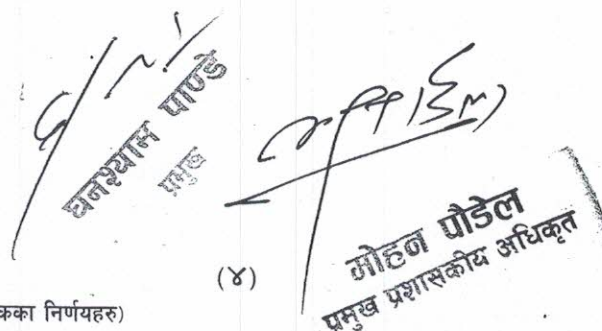 घनश्याम पाण्डे
प्रमुख
मोहन पौडेल
प्रमुख प्रशासकीय अधिकृत
(४)
कका निर्णयहरु)